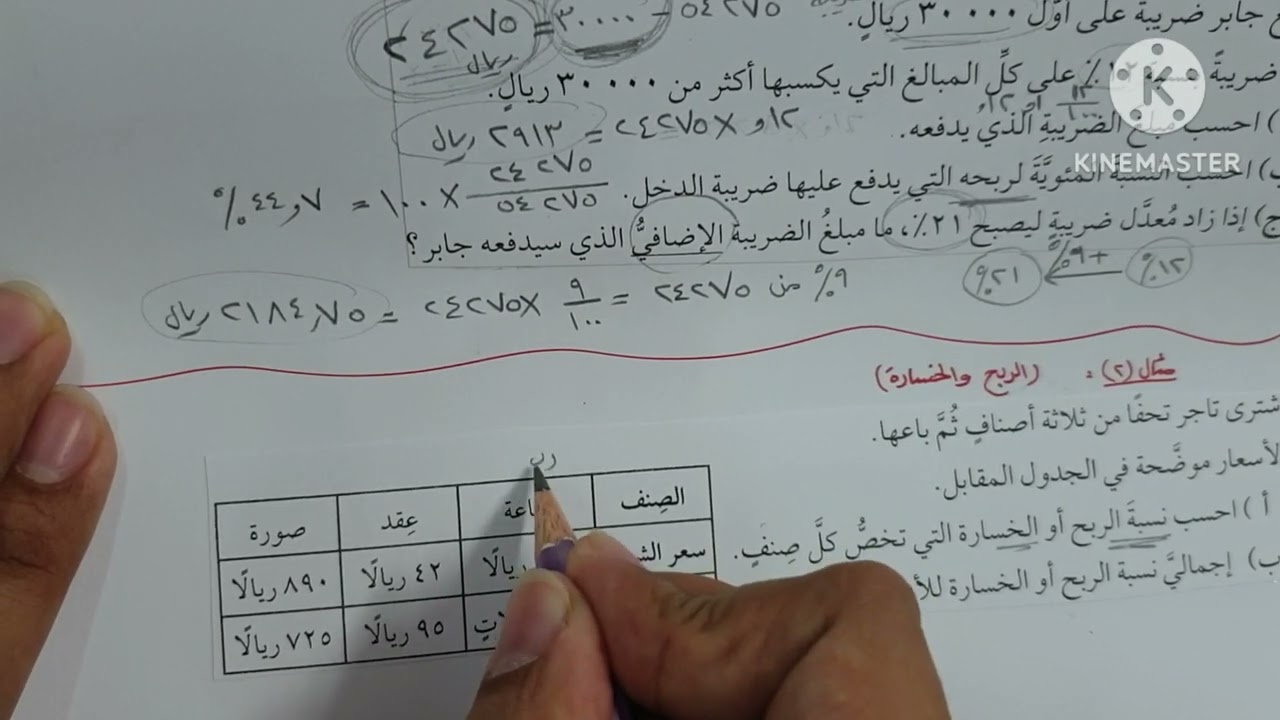 جابر ضريبة على أوَّل ٣٠ ٠٠٠ ريالٍ.
٥٤٢٧٥ - ٣٠٠٠٠ = ٢٤٢٧٥ ريال
على كلِّ المبالغ التي يكسبها أكثر من ٣٠ ٠٠٠ ريالٍ.
KINEMASTER
) احسب مبلغ الضريبةِ الذي يدفعه.
٢٤٢٧٥ × ٠,١٢ = ٢٩١٣ ريال
) احسب النسبة المئويَّةَ لربحه التي يدفع عليها ضريبة الدخل.
٢٤٢٧٥ / ٥٤٢٧٥ × ١٠٠ = ٤٤,٧ %
ج) إذا زاد مُعدَّل ضريبةٍ ليصبح ٢١٪، ما مبلغُ الضريبة الإضافيُّ الذي سيدفعه جابر؟
١٢% +٩% ٢١%
٩% من ٢٤٢٧٥ = ٩/١٠٠ × ٢٤٢٧٥ = ٢١٨٤,٧٥ ريال
مثال (٢) : (الربح والخسارة)
شترى تاجر تحفًا من ثلاثة أصنافٍ ثُمَّ باعها.
لأسعار موضَّحة في الجدول المقابل.
أ ) احسب نسبةَ الربح أو الخسارة التي تخصُّ كلَّ صِنفٍ.
ب) إجماليَّ نسبة الربح أو الخسارة
الصِنف عِقد صورة
سعر ريالًا ٤٢ ريالًا ٨٩٠ ريالًا
٩٥ ريالًا ٧٢٥ ريالًا